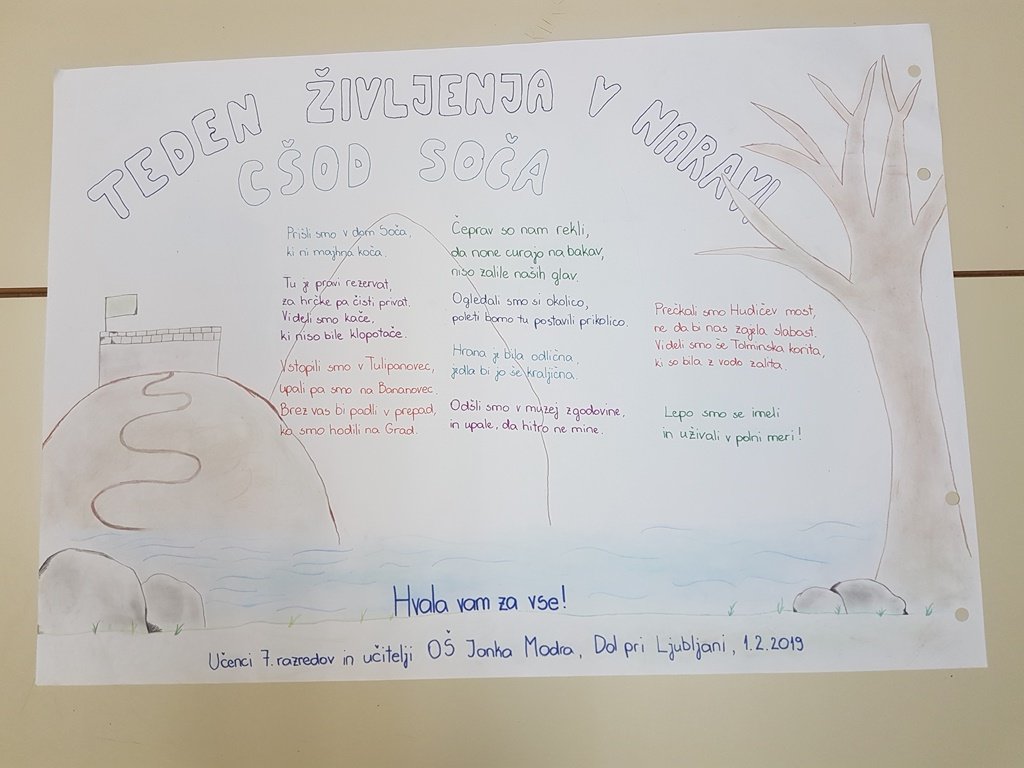 TEDEN ŽIVLJENJA V NARAVI
CŠOD SOČA
Prišli smo v dom Soča,
ki ni majhna koča.
Tu je pravi rezervat,
za hrčke pa čisti privat.
Videli smo kače,
ki niso bile klopotače.
Vstopili smo v Tulipanovec,
upali pa smo na Bananovec.
Brez vas bi padli v prepad,
ko smo hodili na Grad.
Čeprav so nam rekli,
da none curajo na bakav,
niso zalile naših glav.
Ogledali smo si okolico,
poleti bomo tu postavili prikolico.
Hrana je bila odlična,
jedla bi jo še kraljična.
Odšli smo v muzej zgodovine,
in upale, da hitro ne mine.
Prečkali smo Hudičev most,
ne da bi nas zajela slabost.
Videli smo še Tolminska korita,
ki so bila z vodo zalita.
Lepo smo se imeli
in uživali v polni meri!
Hvala vam za vse!
Učenci 7. razredov in učitelji OŠ Janka Modra, Dol pri Ljubljani, 1.2.2019